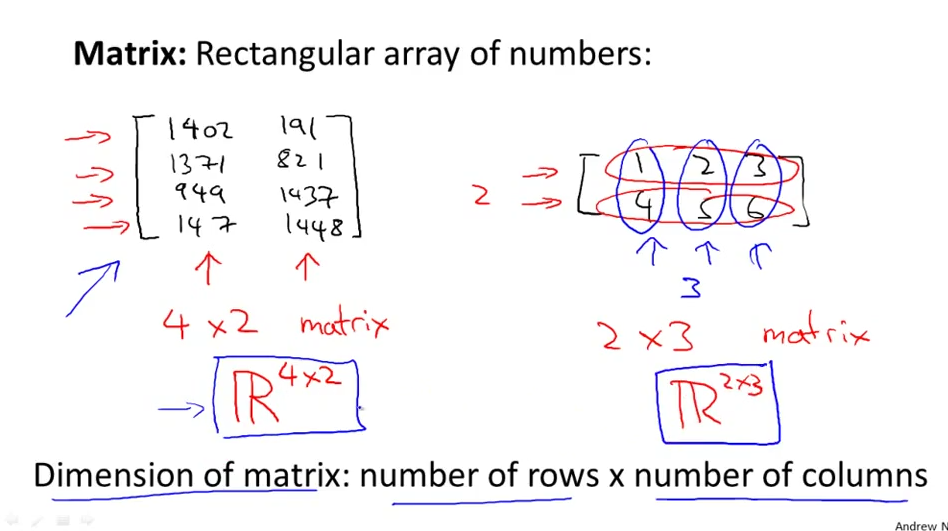 Matrix: Rectangular array of numbers:
1402 191
1371 821
949 1437
147 1448
4 x 2 matrix
ℝ^{4x2}
1 2 3
2
4 5 6
3
2 x 3 matrix
ℝ^{2x3}
Dimension of matrix: number of rows x number of columns
Andrew N